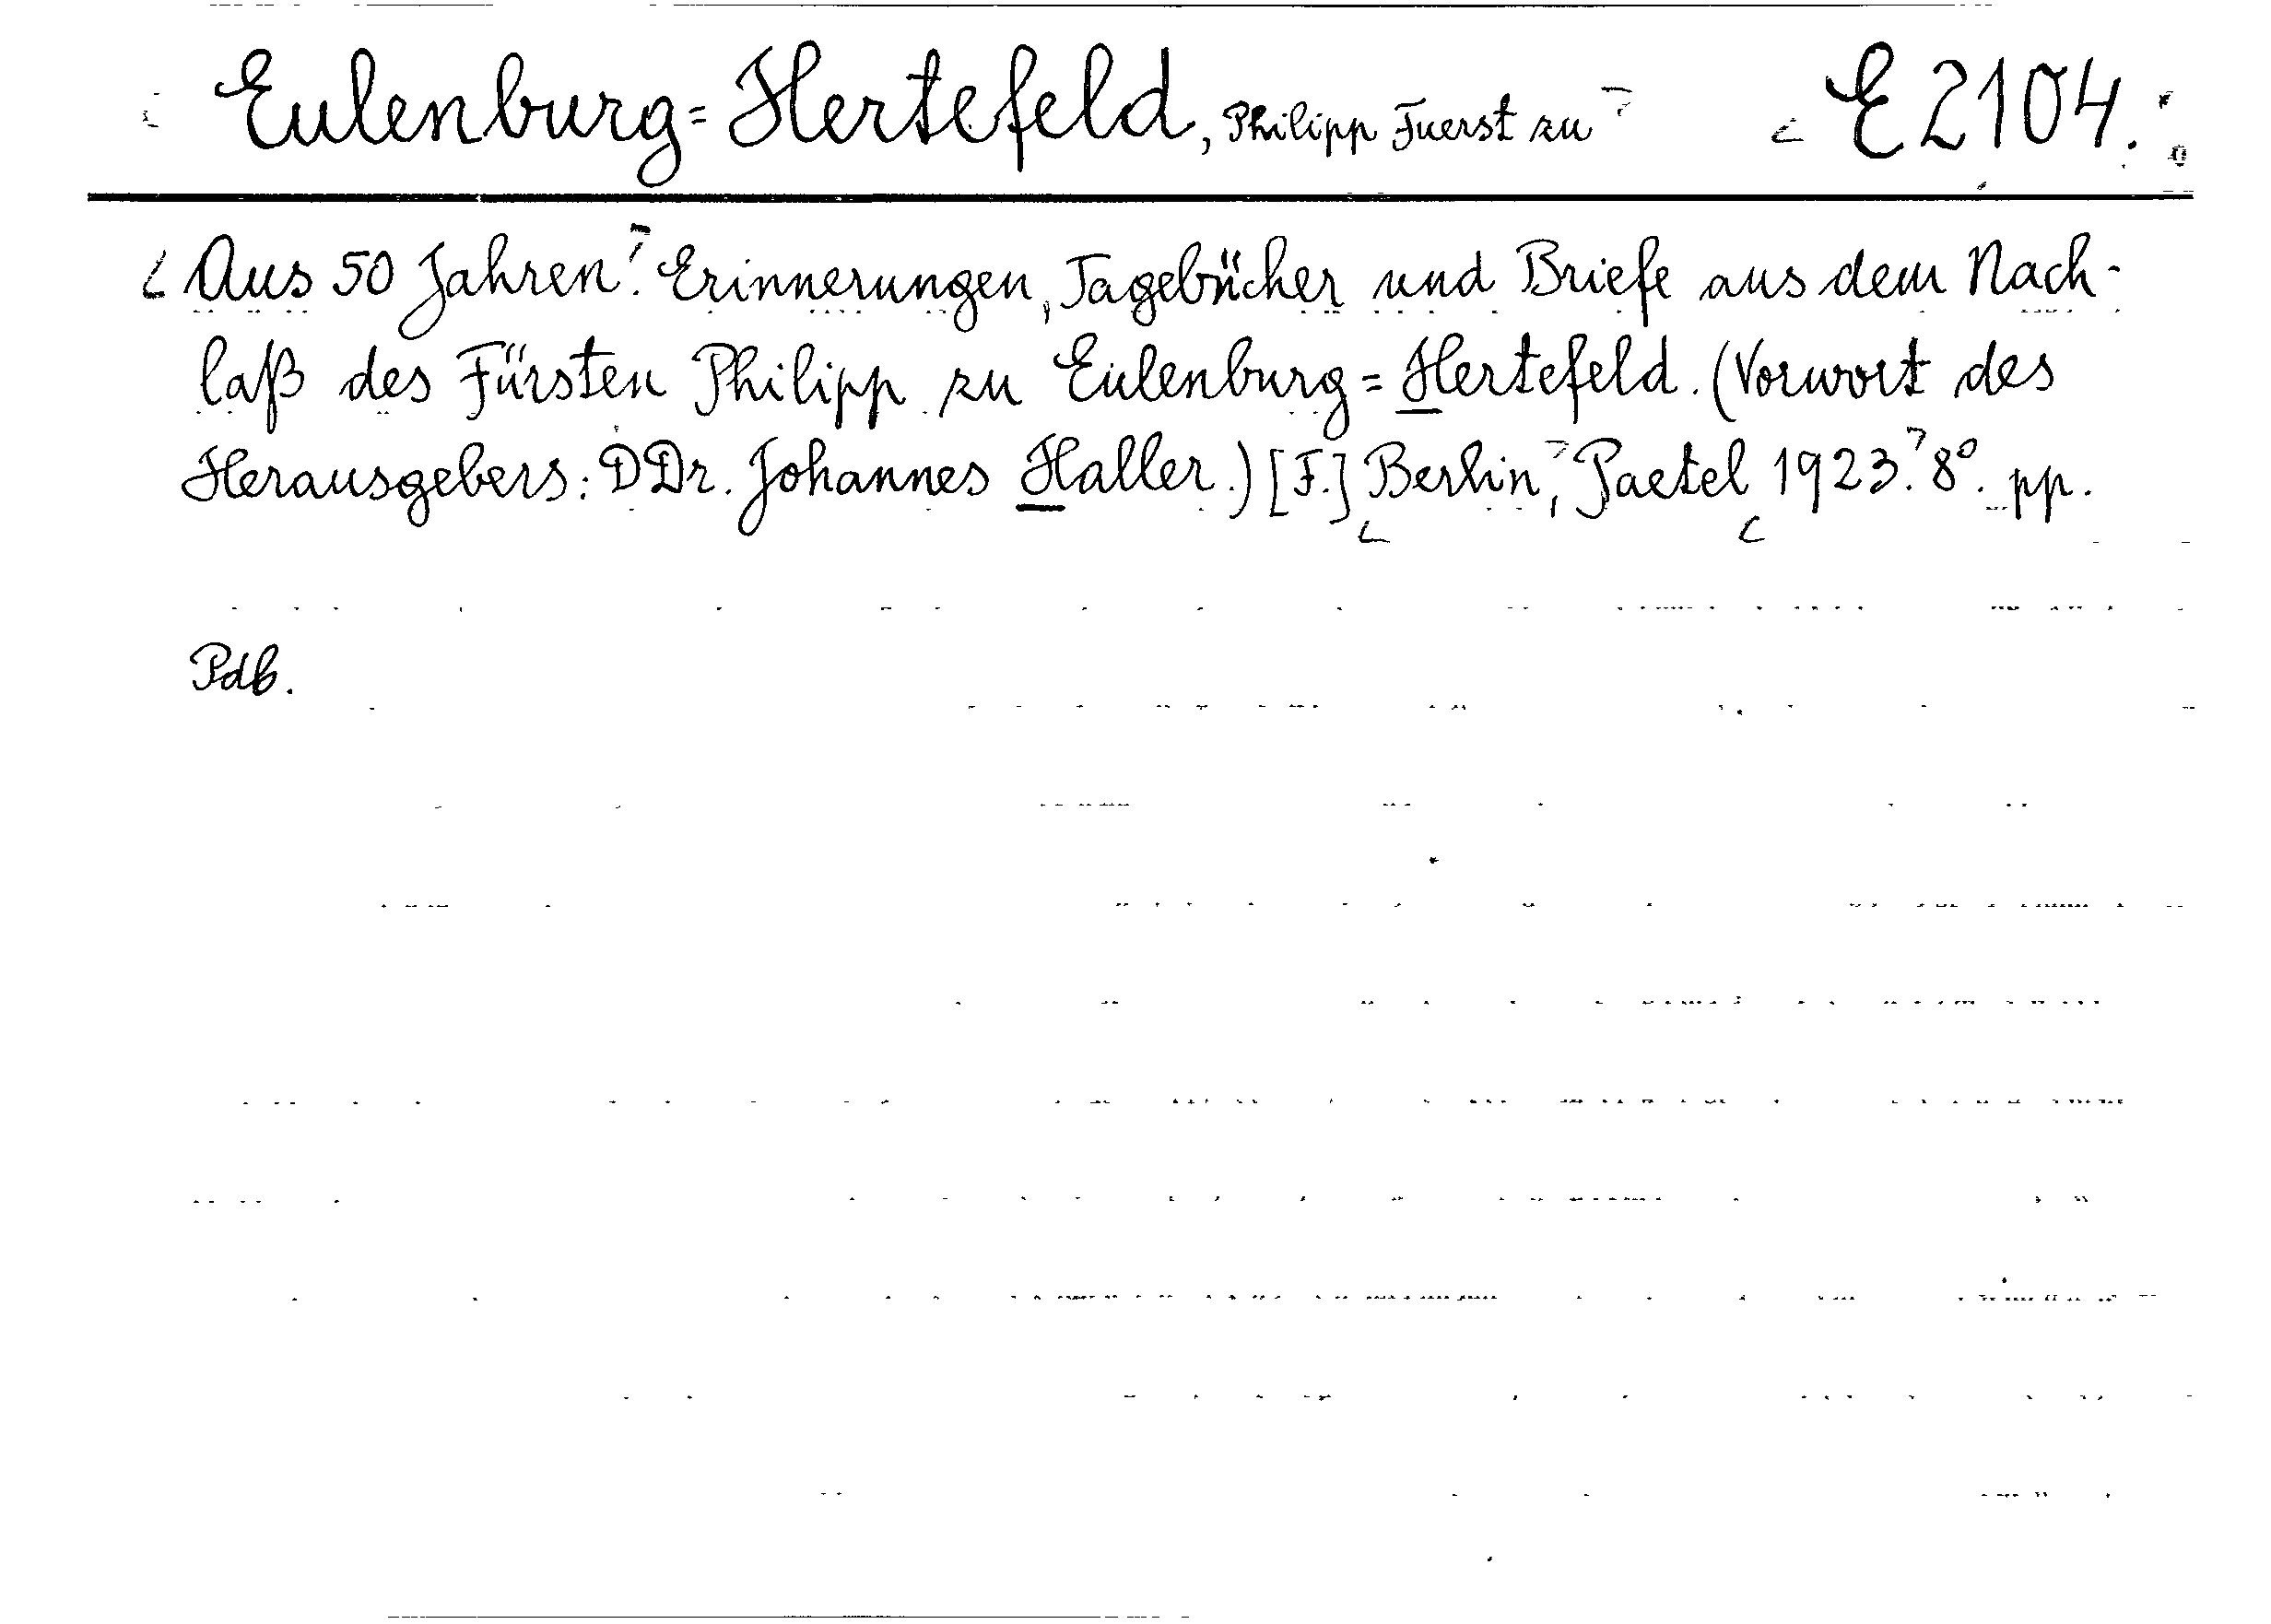 Eulenburg=Hertefeld, Philipp Fuerst zu E 2104.
Aus 50 Jahren. Erinnerungen, Tagebücher und Briefe aus dem Nach-
laß des Fürsten Philipp zu Eulenburg=Hertefeld. (Vorwort des
Herausgebers: DDr. Johannes Haller.) [F.] Berlin, Paetel 1923. 8°. pp.
Pdb.